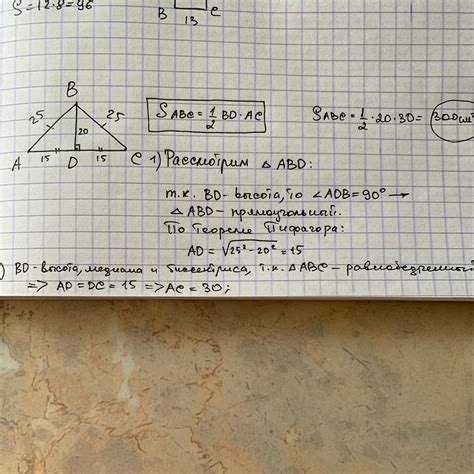 S=12·8=96
B C
13
B
25 25
20
A 15 D 15 C
S ABC = 1/2 BD · AC
S ABC = 1/2 · 20 · 30 = 300 см²
1) Рассмотрим △ ABD:
т.к. BD - высота, то ∠ADB = 90° →
△ ABD - прямоугольный.
По теореме Пифагора:
AD = √25² - 20² = 15
) BD - высота, медиана и биссектриса, т.к. △ABC - равнобедренный
=> AD = DC = 15 => AC = 30;